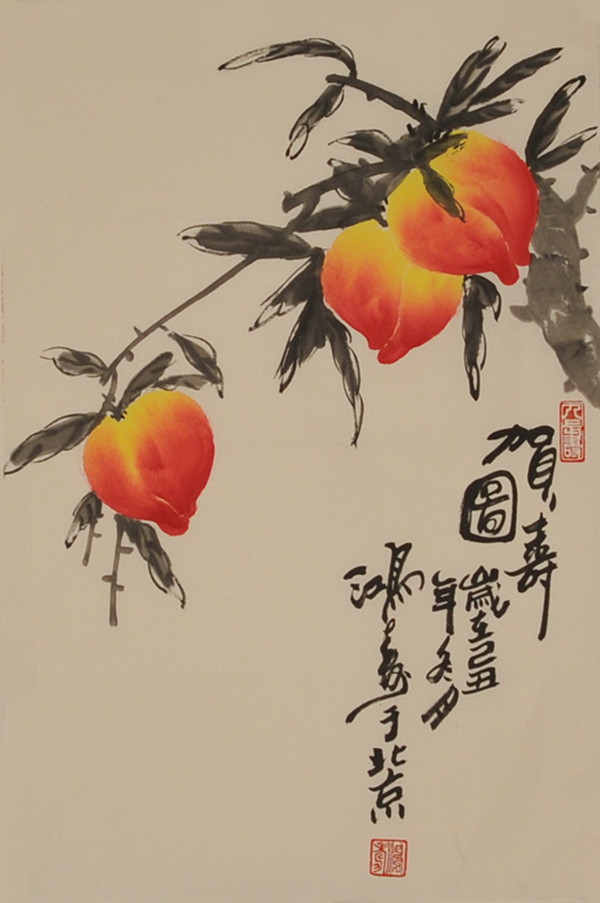 賀壽
圖
歲在己丑
年冬月
鴻壽于北京